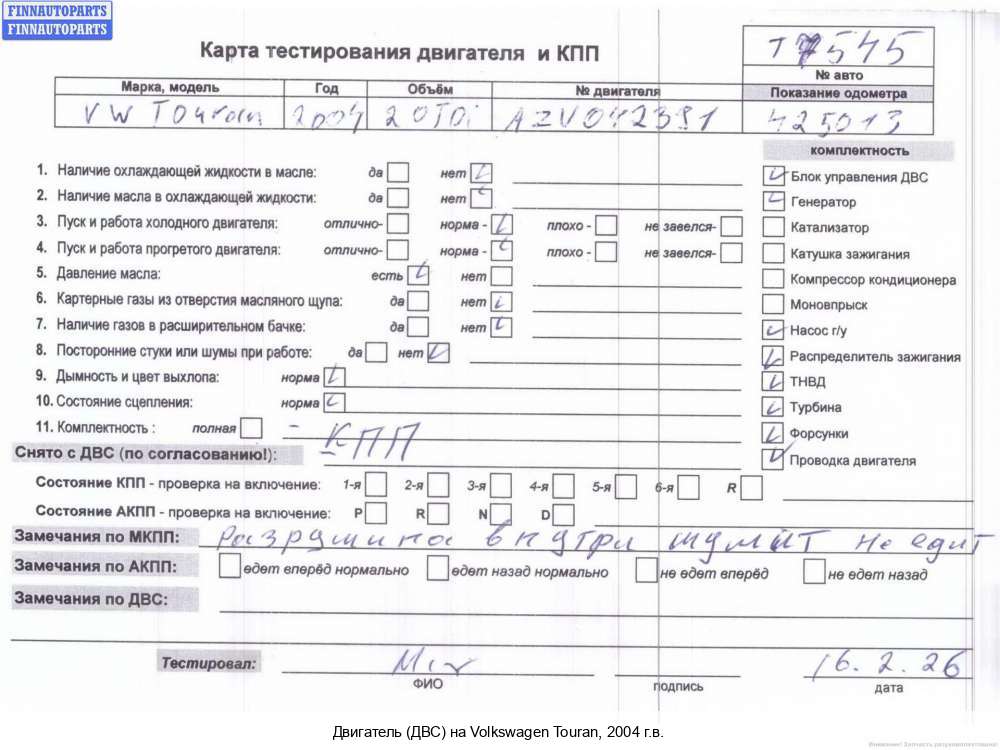 FINNAUTOPARTS
FINNAUTOPARTS
Карта тестирования двигателя и КПП
T7545
№ авто
Марка, модель Год Объём № двигателя Показание одометра
VW Touran 2004 20TDi AZV042391 425013
комплектность
1. Наличие охлаждающей жидкости в масле: да нет
2. Наличие масла в охлаждающей жидкости: да нет
3. Пуск и работа холодного двигателя: отлично- норма - плохо - не завелся-
4. Пуск и работа прогретого двигателя: отлично- норма - плохо - не завелся-
5. Давление масла: есть нет
6. Картерные газы из отверстия масляного щупа: да нет
7. Наличие газов в расширительном бачке: да нет
8. Посторонние стуки или шумы при работе: да нет
9. Дымность и цвет выхлопа: норма
10. Состояние сцепления: норма
11. Комплектность : полная -
Блок управления ДВС
Генератор
Катализатор
Катушка зажигания
Компрессор кондиционера
Моновпрыск
Насос г/у
Распределитель зажигания
ТНВД
Турбина
Форсунки
Проводка двигателя
Снято с ДВС (по согласованию!): КПП
Состояние КПП - проверка на включение: 1-я 2-я 3-я 4-я 5-я 6-я R
Состояние АКПП - проверка на включение: P R N D
Замечания по МКПП: Разрушина внутри шумит не едит
Замечания по АКПП: едет вперёд нормально едет назад нормально не едет вперёд не едет назад
Замечания по ДВС:
Тестировал: 16.2.26
ФИО подпись дата
Двигатель (ДВС) на Volkswagen Touran, 2004 г.в.
Внимание! Запчасть разукомплектована!